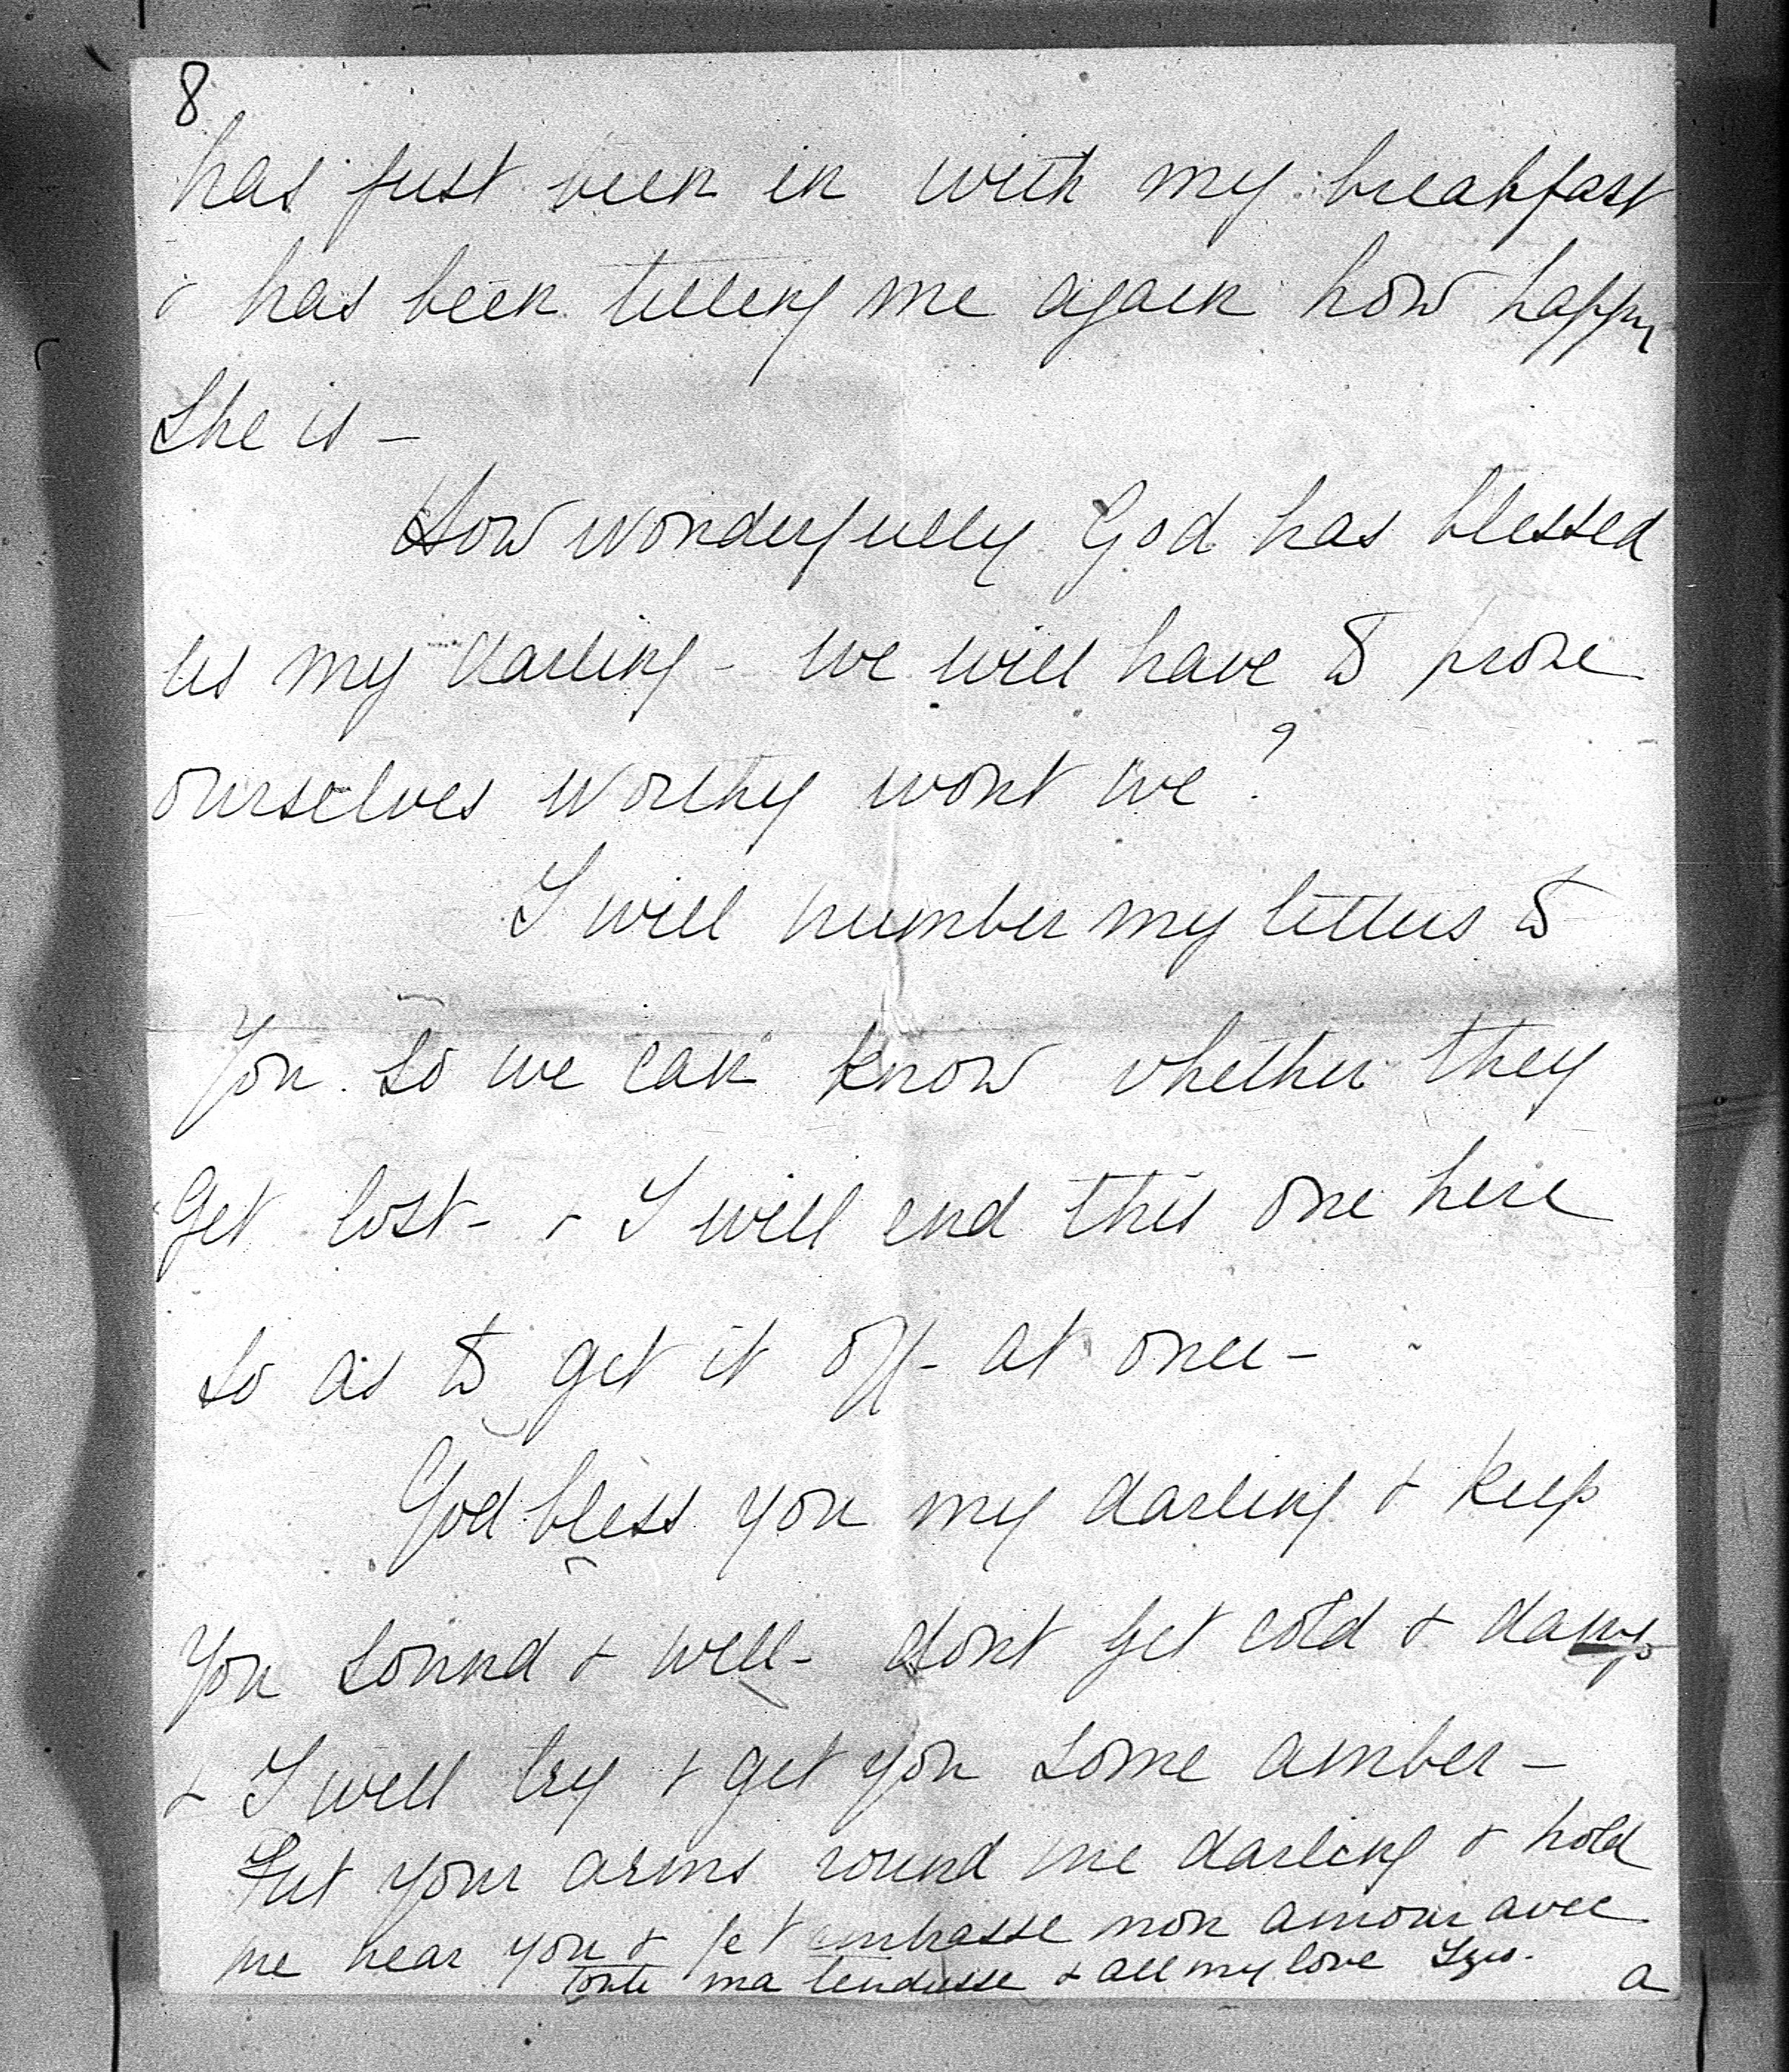 8
has just been in with my breakfast
& has been telling me again how happy
She is –
How wonderfully God has blessed
us my darling – we will have to prove
ourselves worthy wont we?
I will number my letters to
You so we can know whether they
Get lost – & I will end this one here
So as to get it off – at once –
God bless you my darling & keep
You sound & well – dont get cold & damp
& I will try & get you some amber –
Put your arms round me darling & hold
me near you & je t'embrasse mon amour avec
toute ma tendresse & all my love
a